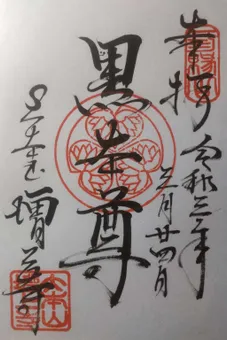 奉拝
令和三年
三月廿四日
黒本尊
増上寺